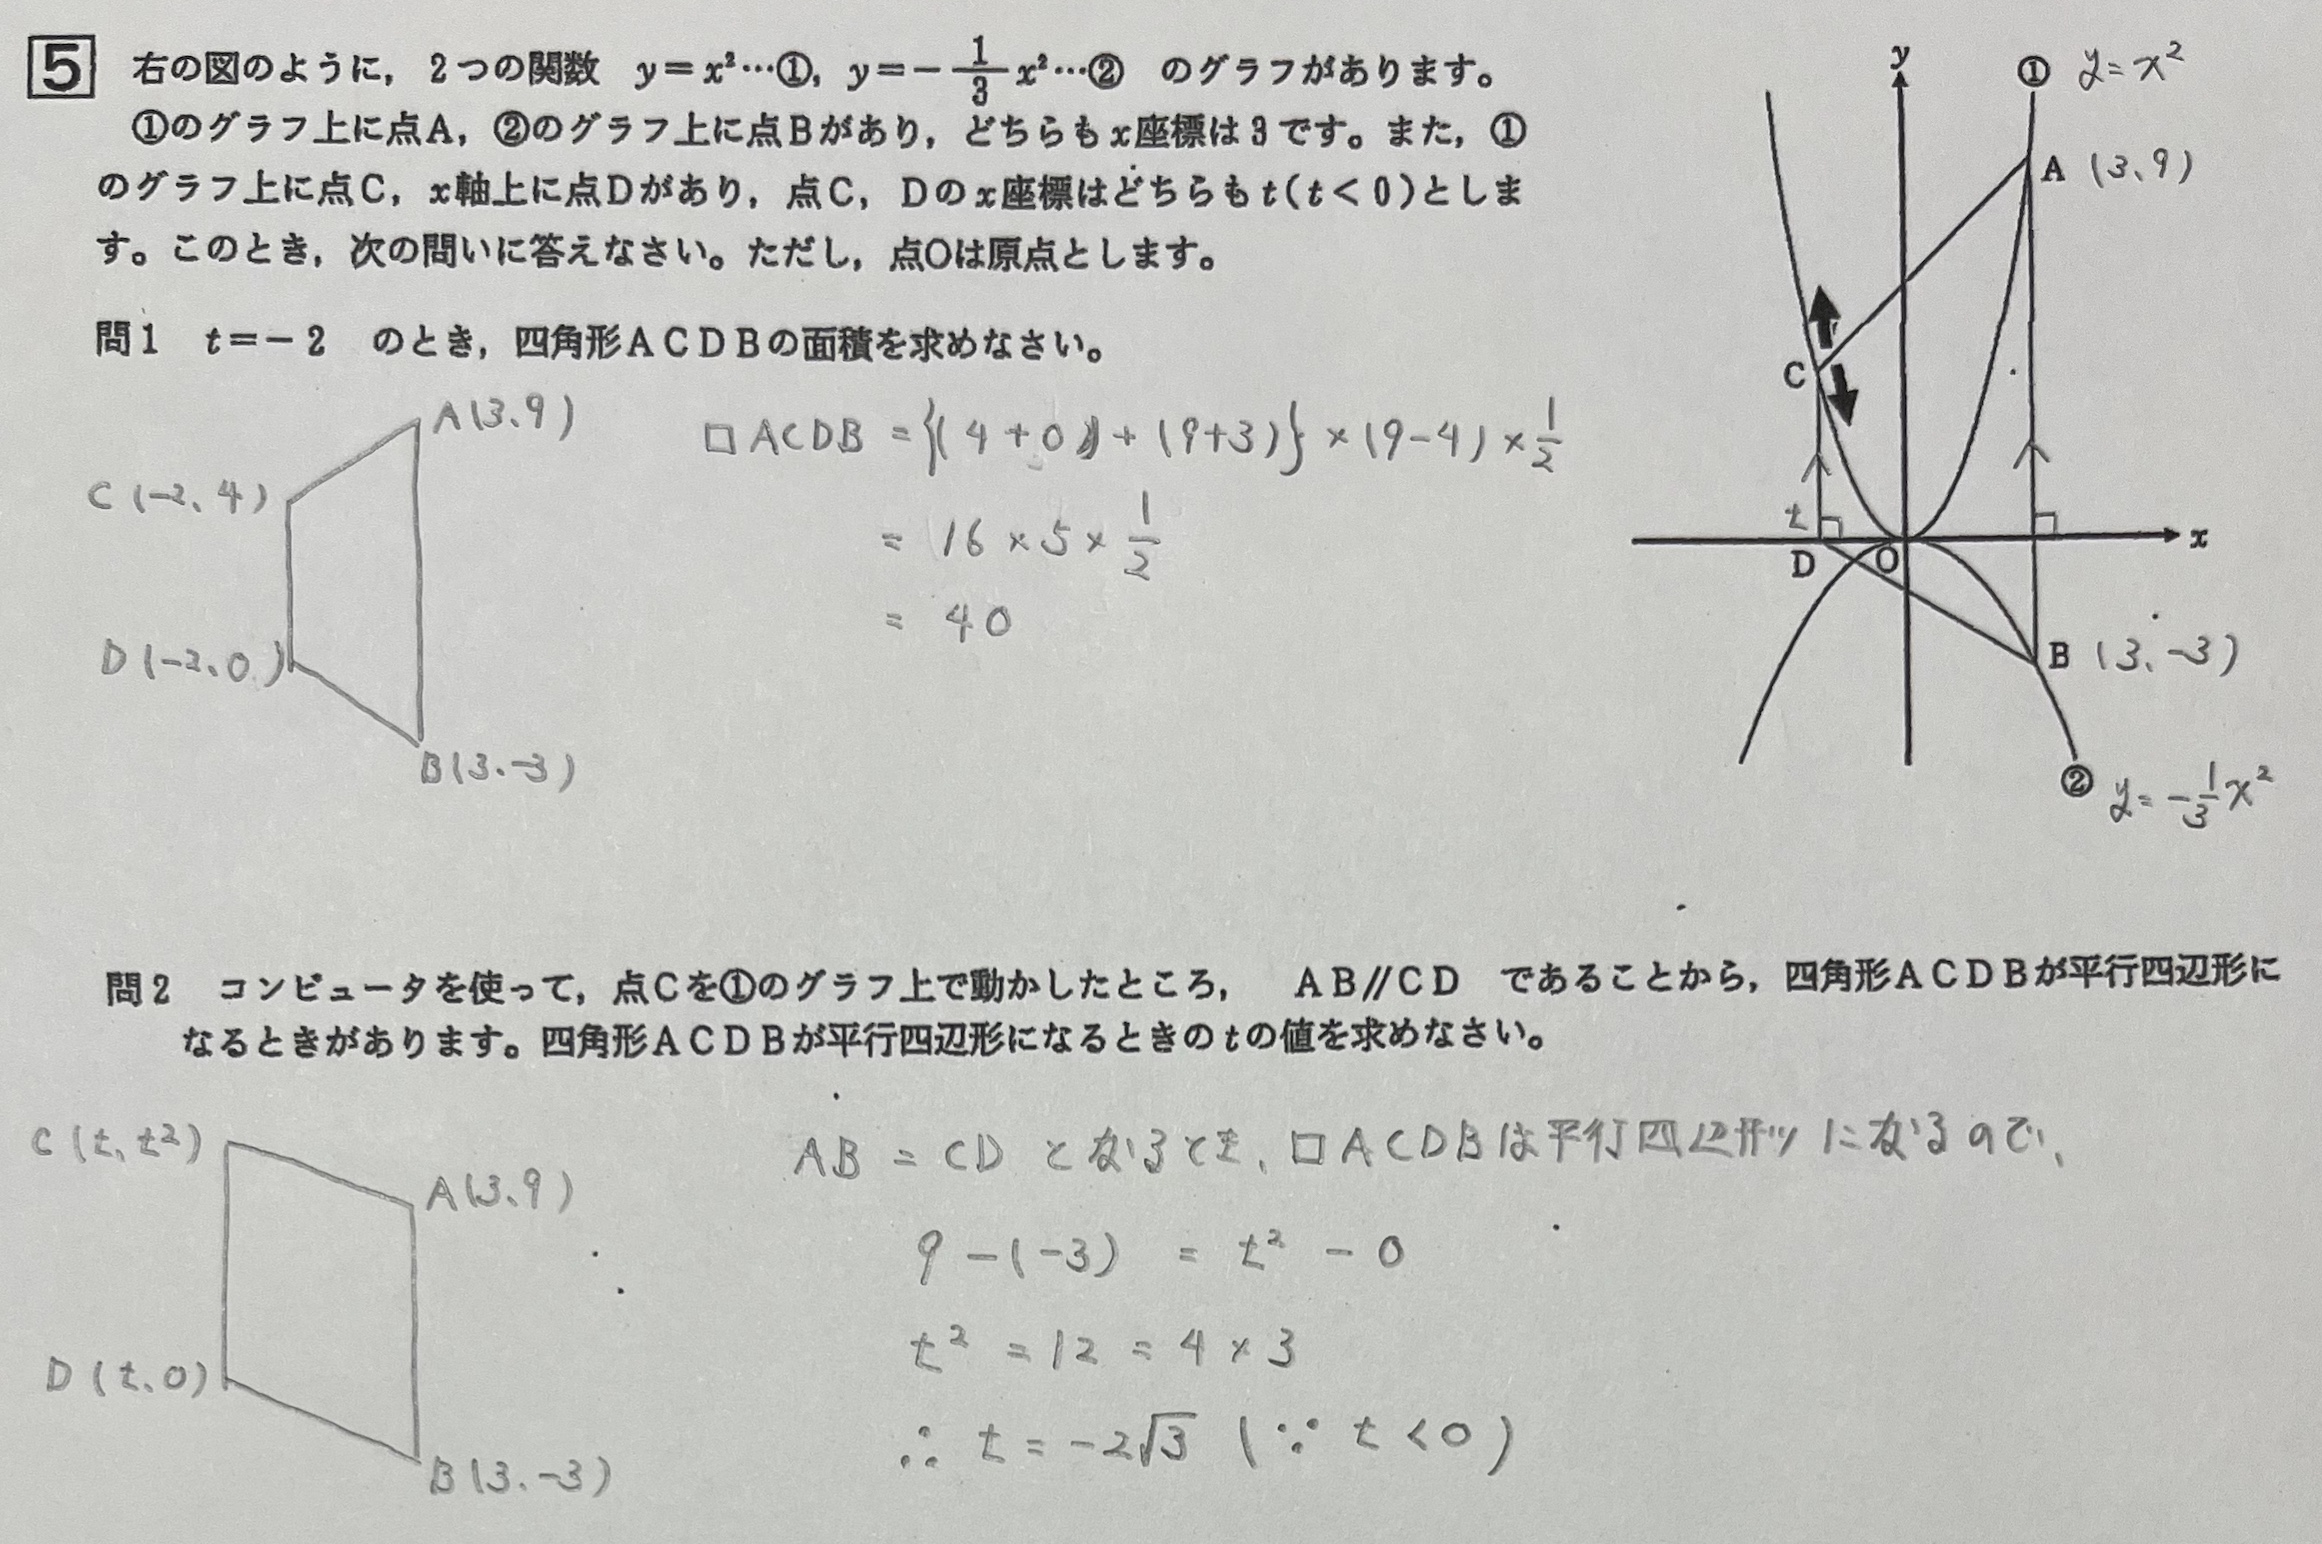 5 右の図のように，2つの関数 y＝x²…①，y＝－1/3x²…② のグラフがあります。
①のグラフ上に点A，②のグラフ上に点Bがあり，どちらもx座標は3です。また，①
のグラフ上に点C，x軸上に点Dがあり，点C，Dのx座標はどちらもt(t＜0)としま
す。このとき，次の問いに答えなさい。ただし，点Oは原点とします。
問1 t＝－2 のとき，四角形ACDBの面積を求めなさい。
A(3、9)
C(-2、4)
D(-2、0)
B(3、-3)
□ACDB = {(4+0)+(9+3)}×(9-4)×1/2
= 16×5×1/2
= 40
y
① y=x²
A (3、9)
C
t
D
O
x
B (3、-3)
② y=-1/3x²
問2 コンピュータを使って，点Cを①のグラフ上で動かしたところ， AB//CD であることから，四角形ACDBが平行四辺形に
なるときがあります。四角形ACDBが平行四辺形になるときのtの値を求めなさい。
C(t、t²)
A(3、9)
D(t、0)
B(3、-3)
AB = CD となるとき、□ACDBは平行四辺形になるので、
9-(-3) = t²-0
t² = 12 = 4×3
∴ t = -2√3 (∵ t<0)